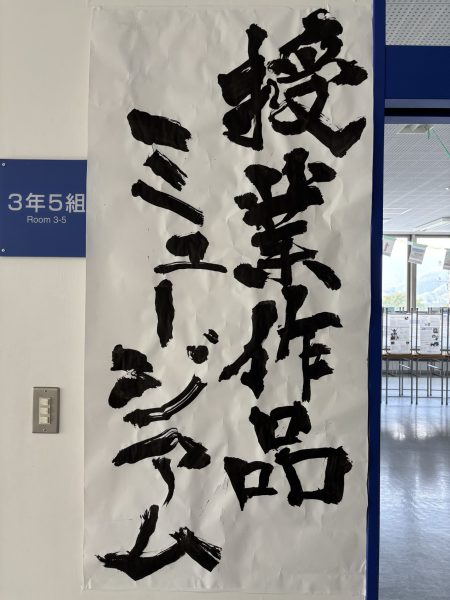 授業作品
ミュージアム
3年5組
Room 3-5